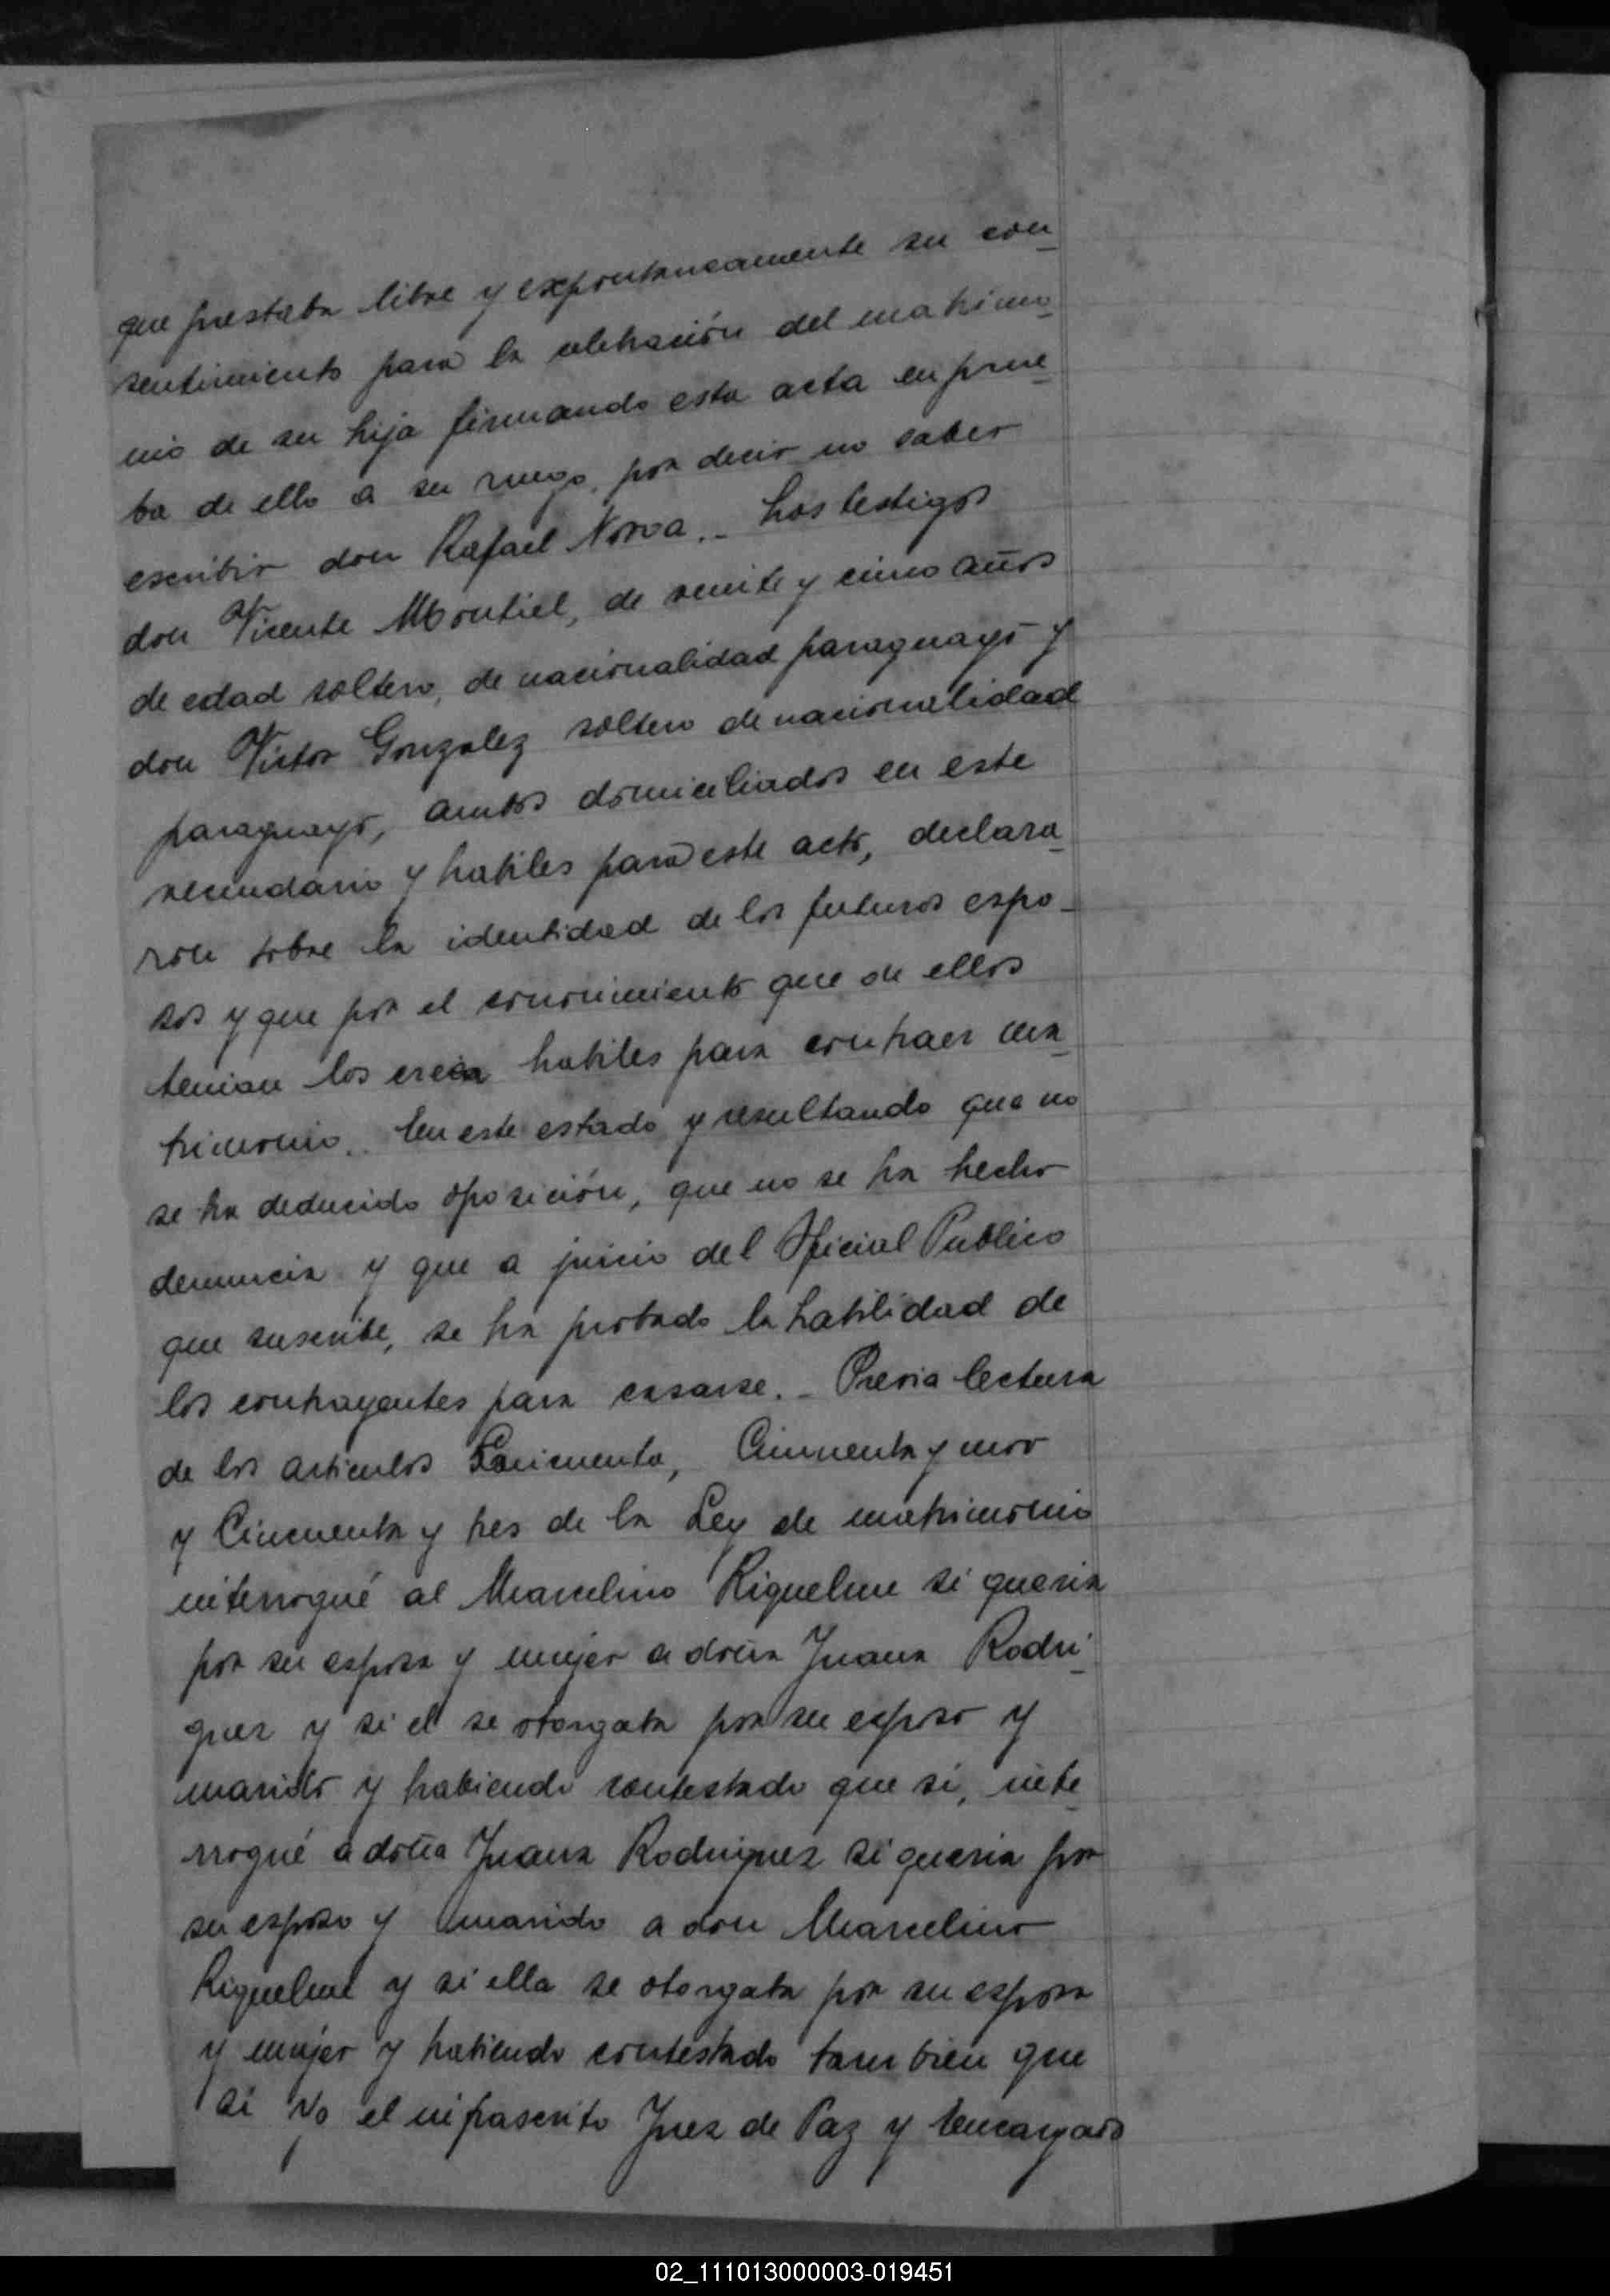 que prestaba libre y expontaneamente su con
sentimiento para la celebración del matrimo
nio de su hija firmando esta acta en prue
ba de ello a su ruego, por decir no saber
escribir don Rafael Novoa. - Los testigos
don Vicente Montiel, de veinte y cinco años
de edad soltero, de nacionalidad paraguayo y
don Victor Gonzalez soltero de nacionalidad
paraguayo, ambos domiciliados en este
vecindario y habiles para este acto, declara
ron sobre la identidad de los futuros espo-
sos y que por el conocimiento que de ellos
tenian los creia habiles para contraer ma
trimonio. En este estado y resultando que no
se ha deducido oposición, que no se ha hecho
denuncia y que a juicio del Oficial Publico
que suscribe, se ha probado la habilidad de
los contrayentes para casarse. - Previa lectura
de los articulos Cincuenta, Cincuenta y uno
y Cincuenta y tres de la Ley de matrimonio
interrogué al Marcelino Riquelme si queria
por su esposa y mujer a doña Juana Rodri
guez y si el se otorgaba por su esposo y
marido y habiendo contestado que si, inte
rrogué a doña Juana Rodriguez si queria por
su esposo y marido a don Marcelino
Riquelme y si ella se otorgaba por su esposa
y mujer y habiendo contestado tambien que
si Yo el infrascrito Juez de Paz y Encargado
02_111013000003-019451